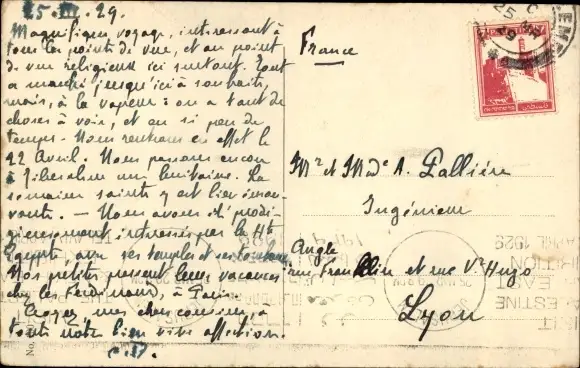 25.III.29.
Magnifique voyage, intéressant à
tous les points de vue, et au point
de vue religieux ici surtout. Tout
a marché jusqu'ici à souhaits,
mais, à la vapeur: on a tant de
choses à voir, et on si peu de
temps. Nous rentrons en effet le
22 Avril. Nous passons encore
à une . La
semaine sainte y est bien émou-
vante. — Nous avons été prodi-
gieusement intéressés par la Hte
Egypte avec ses temples et ses tombeaux.
Nos petits passent leurs vacances
chez les , à Paris.
Croyez, mes chers cousins, à
toute notre bien vive affection.
France
Mr et Made A. Pallière
Ingénieur
Angle
rue Franklin et rue Vor Hugo
Lyon
25 MR
29
No.